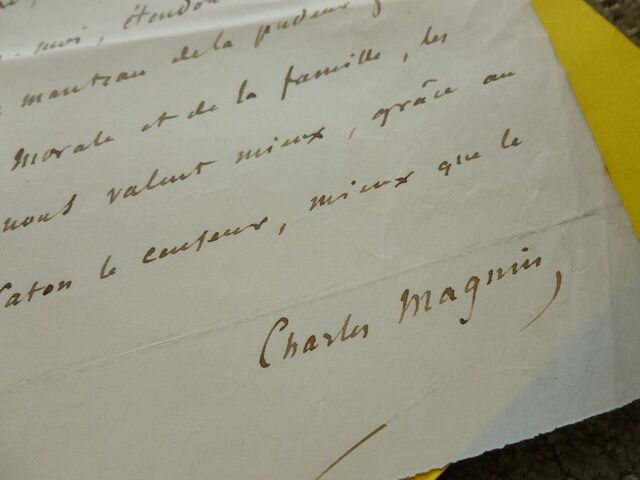 moi, étendons
manteau de la pudeur
morale et de la famille, les
nous valent mieux, grâce au
Caton le censeur, mieux que le
Charles Magnin,